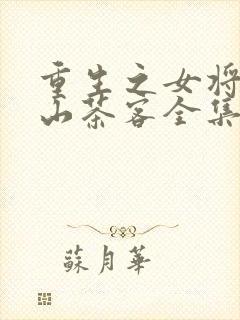 重生之女将
山茶客全集
蘇月華